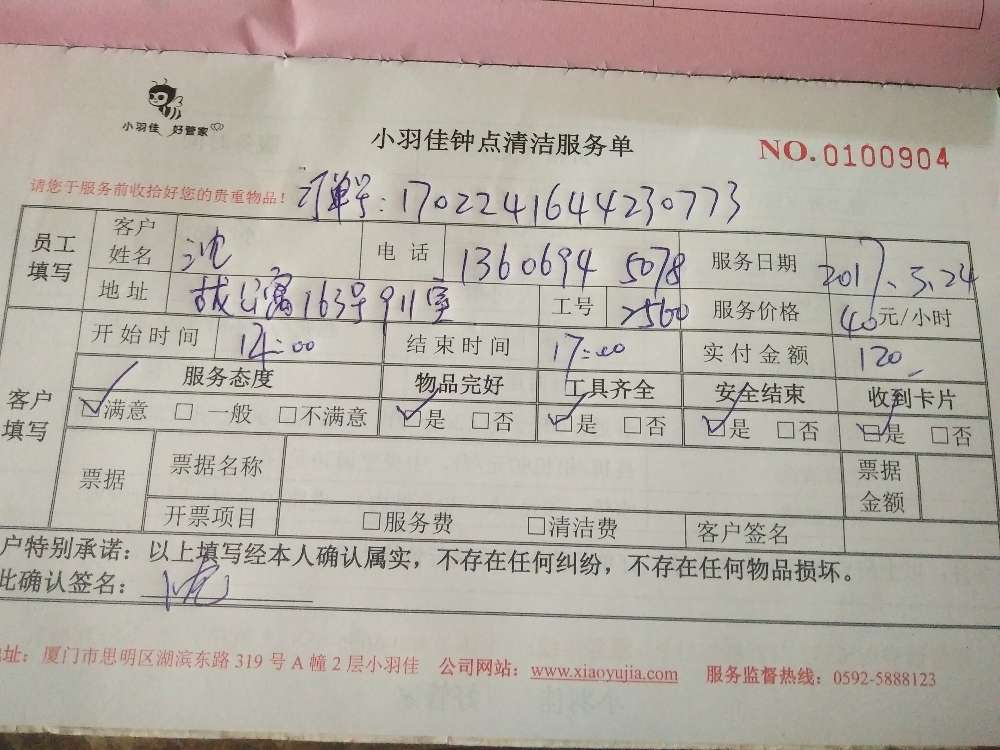 小羽佳 好管家
小羽佳钟点清洁服务单
NO.0100904
请您于服务前收拾好您的贵重物品！
订单号：1702241644230773
员工填写 客户姓名 沈 电话 1360694 5078 服务日期 2017.3.24
地址 公寓163号911室 工号 2560 服务价格 40元/小时
客户填写 开始时间 14:00 结束时间 17:00 实付金额 120
服务态度 物品完好 工具齐全 安全结束 收到卡片
☑满意 □一般 □不满意 ☑是 □否 ☑是 □否 ☑是 □否 ☑是 □否
票据 票据名称 票据金额
开票项目 □服务费 □清洁费 客户签名
户特别承诺：以上填写经本人确认属实，不存在任何纠纷，不存在任何物品损坏。
此确认签名： 沈
址：厦门市思明区湖滨东路 319 号 A 幢 2 层小羽佳 公司网站：www.xiaoyujia.com 服务监督热线：0592-5888123